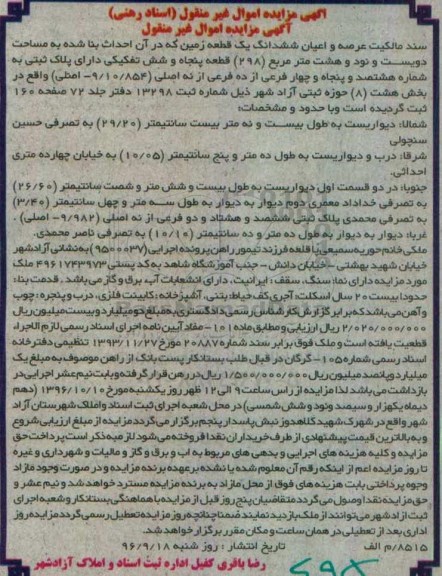 آگهی مزایده اموال غیر منقول (اسناد رهنی)
آگهی مزایده اموال غیر منقول
سند مالکیت عرصه و اعیان ششدانگ یک قطعه زمین که در آن احداث بنا شده به مساحت
دویست و نود و هشت متر مربع (۲۹۸) قطعه پنجاه و شش تفکیکی دارای پلاک ثبتی به
شماره هشتصد و پنجاه و چهار فرعی از ده فرعی از نه اصلی (۹/۱۰/۸۵۴- اصلی) واقع در
بخش هشت (۸) حوزه ثبتی آزاد شهر ذیل شماره ثبت ۱۳۲۹۸ دفتر جلد ۷۲ صفحه ۱۶۰
ثبت گردیده است وبا حدود و مشخصات:
شمالا: دیواریست به طول بیست و نه متر بیست سانتیمتر (۲۹/۲۰) به تصرفی حسین
سنچولی
شرقا: درب و دیواریست به طول ده متر و پنج سانتیمتر (۱۰/۰۵) به خیابان چهارده متری
احداثی.
جنوبا: در دو قسمت اول دیواریست به طول بیست و شش متر و شصت سانتیمتر (۲۶/۶۰)
به تصرفی خداداد معمری دوم دیوار به دیوار به طول سه متر و چهل سانتیمتر (۳/۴۰)
به تصرفی محمدی پلاک ثبتی ششصد و هشتاد و دو فرعی از نه اصلی (۹/۹۸۲- اصلی) .
غربا: دیوار به دیوار به طول ده متر و ده سانتیمتر (۱۰/۱۰) به تصرفی ناصر محمدی.
ملکی خانم حوریه سمیعی پا قلعه فرزند تیمور راهن پرونده اجرایی (۹۵۰۰۰۳۷) به نشانی آزادشهر
خیابان شهید بهشتی - خیابان دانش - جنب آموزشگاه شاهد به کد پستی ۴۹۶۱۷۴۳۹۷۳ ملک
مورد مزایده دارای نما: سنگ، سقف : ایرانیت، دارای انشعابات آب، برق و گاز می باشد . قدمت بنا:
حدودا بیست ۲۰ سال اسکلت: آجری کف حیاط: بتنی، آشپزخانه: کابینت فلزی، درب و پنجره: چوب
و آهن می باشد که بر ابر گزارش کارشناس رسمی دادگستری به مبلغ دو میلیارد و بیست میلیون ریال
۲/۰۲۰/۰۰۰/۰۰۰ ریال ارزیابی و مطابق ماده ۱۰۱- مفاد آیین نامه اجرای اسناد رسمی لازم الاجرا،
قطعیت یافته است و ملک فوق برابر سند شماره ۲۰۸۸۷ مورخ ۱۳۹۳/۱۱/۲۷ تنظیمی دفترخانه
اسناد رسمی شماره ۱۰۵- گرگان در قبال طلب بستانکار پست بانک از راهن موصوف به مبلغ یک
میلیارد و پانصد میلیون ریال ۱/۵۰۰/۰۰۰/۰۰۰ ریال در رهن قرار گرفته و بابت نیم عشر اجرایی در
بازداشت می باشد لذا مزایده از راس ساعت ۹ الی ۱۲ ظهر روز یکشنبه مورخ ۱۳۹۶/۱۰/۱۰ (دهم
دیماه یکهزار و سیصد و نود و شش شمسی) در محل شعبه اجرای ثبت اسناد و املاک شهرستان آزاد
شهر واقع در شهرک شهید کلاهدوز نبش پاسدار پنجم برگزار می گردد مزایده از مبلغ ارزیابی شروع
و به بالاترین قیمت پیشنهادی از طرف خریداران نقدا فروخته می شود لازم به ذکر است پرداخت حق
مزایده و کلیه هزینه های اجرایی و بدهی های مربوط به آب و برق و گاز و مالیات و شهرداری و غیره
تا روز مزایده اعم از اینکه رقم آن معلوم شده یا نشده بر عهده برنده مزایده و در صورت وجود مازاد
وجوه پرداختی بابت هزینه های فوق از محل مازاد به برنده مزایده مسترد خواهد شد و نیم عشر و
حق مزایده نقدا وصول می گردد متقاضیان پنج روز قبل از مزایده با هماهنگی بستانکار و شعبه اجرای
ثبت آزادشهر می توانند از ملک بازدید نمایند ضمنا چنانچه روز مزایده تعطیل رسمی گردد مزایده روز
اداری بعد از تعطیلی در همان ساعت و مکان مقرر برگزار خواهد شد.
۸۵۱۵/م الف تاریخ انتشار : روز شنبه ۹۶/۹/۱۸
رضا باقری کفیل اداره ثبت اسناد و املاک آزادشهر